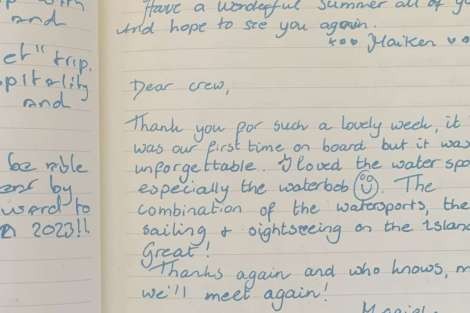 with
and
et" trip.
pitality
and
be able
by
ward to
2023!!
Have a wonderful summer all of
And hope to see you again.
Maiken
Dear crew,
Thank you for such a lovely week, it
was our first time on board but it was
unforgettable. I loved the water spo
especially the waterbob ☺. The
combination of the watersports, the
sailing & sightseeing on the Island
Great!
Thanks again and who knows, m
we'll meet again!